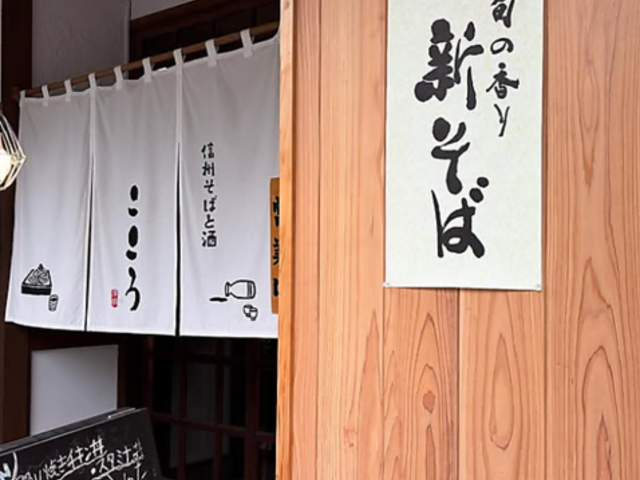 旬の香り
新そば
信州そばと酒
こころ
焼きチキン丼
・スタミナ丼